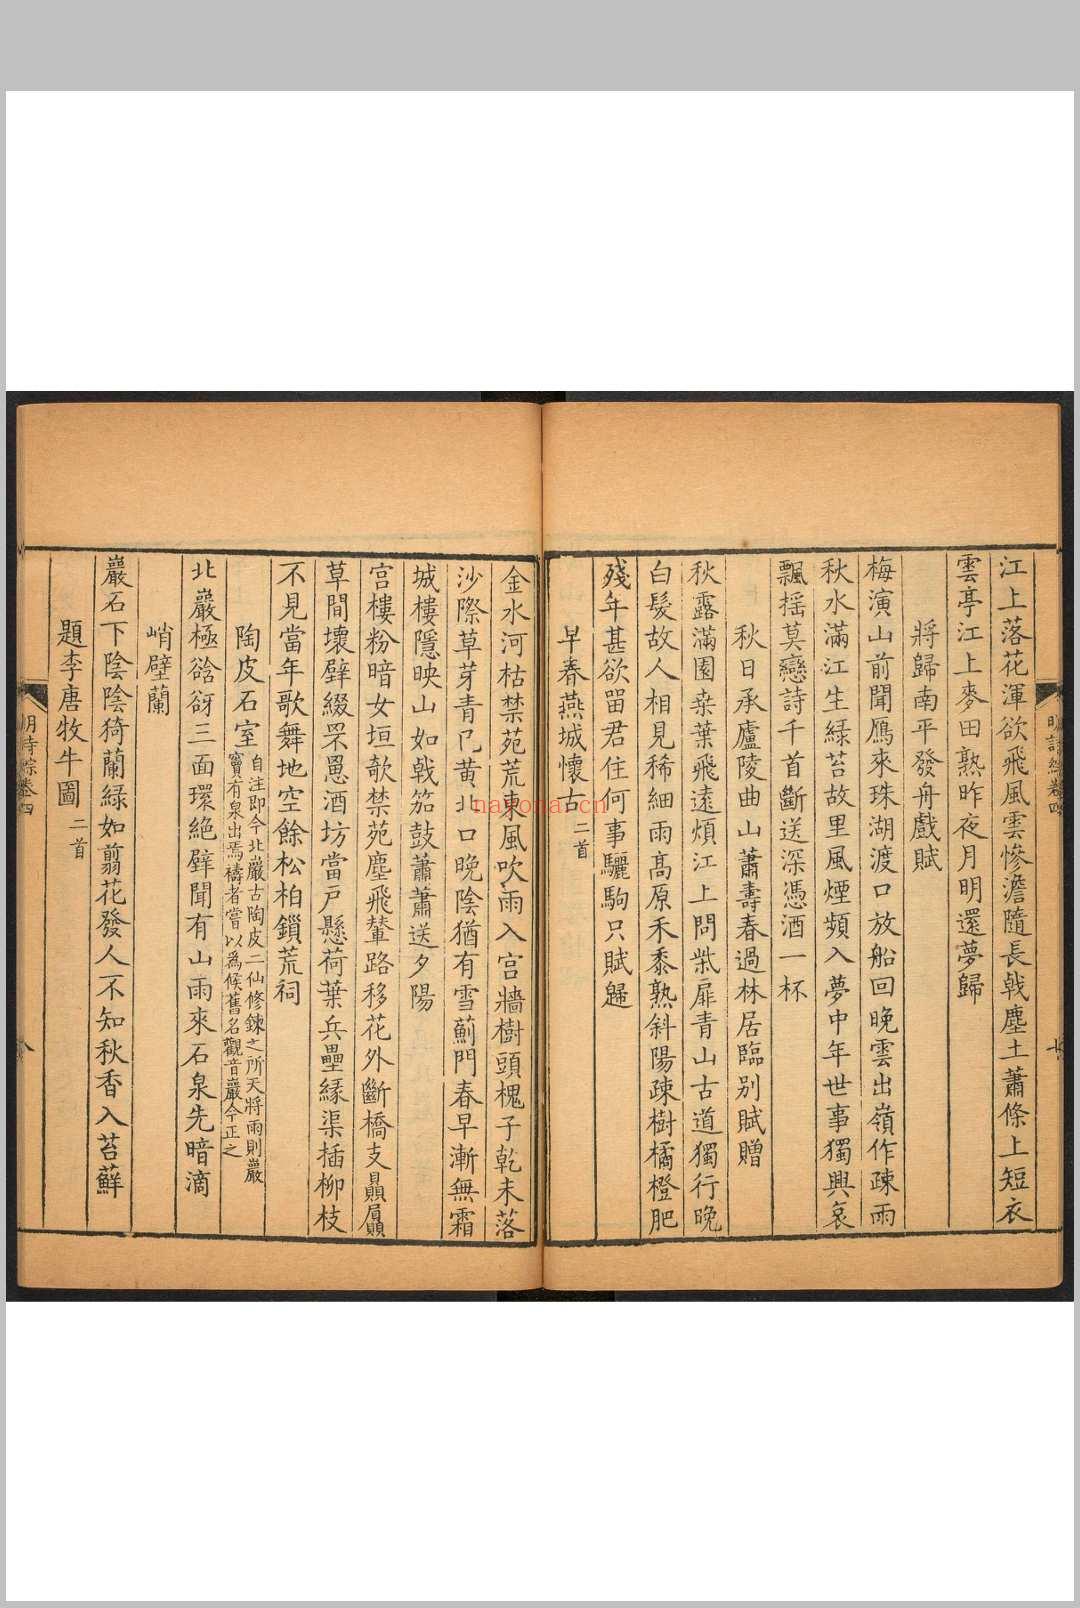 江上落花渾欲飛風雲慘澹隨長戟塵土蕭條上短衣
雲亭江上麥田熟昨夜月明還夢歸
將歸南平發舟戲賦
梅演山前聞鴈來珠湖渡口放船回晚雲出嶺作疎雨
秋水滿江生綠苔故里風煙頻入夢中年世事獨興哀
飄搖莫戀詩千首斷送深憑酒一杯
秋日承廬陵曲山蕭壽春過林居臨别賦贈
秋露滿園桒葉飛遠煩江上問柴扉青山古道獨行晚
白髮故人相見稀細雨髙原禾黍熟斜陽疎樹橘橙肥
殘年甚欲留君住何事驪駒只賦歸
早春燕城懷古二首
金水河枯禁苑荒東風吹雨入宮牆樹頭槐子乾未落
沙際草芽青㠯黄北口晚陰猶有雪薊門春早漸無霜
城樓隱映山如戟笳鼓蕭蕭送夕陽
宮樓粉暗女垣欹禁苑塵飛輦路移花外斷橋支贔屭
草間壞壁綴罘罳酒坊當戶懸荷葉兵壘緣渠插柳枝
不見當年歌舞地空餘松柏鎻荒祠
陶皮石室自注即今北巖古陶皮二仙修鍊之所天將雨則巖
竇有泉出焉禱者嘗以爲候舊名觀音巖今正之
北巖極谽谺三面環絶壁聞有山雨來石泉先暗滴
峭壁蘭
巖石下陰陰猗蘭緑如翦花發人不知秋香入苔蘚
題李唐牧牛圖二首
明詩綜卷四
七
明詩綜卷四
nayona.cn